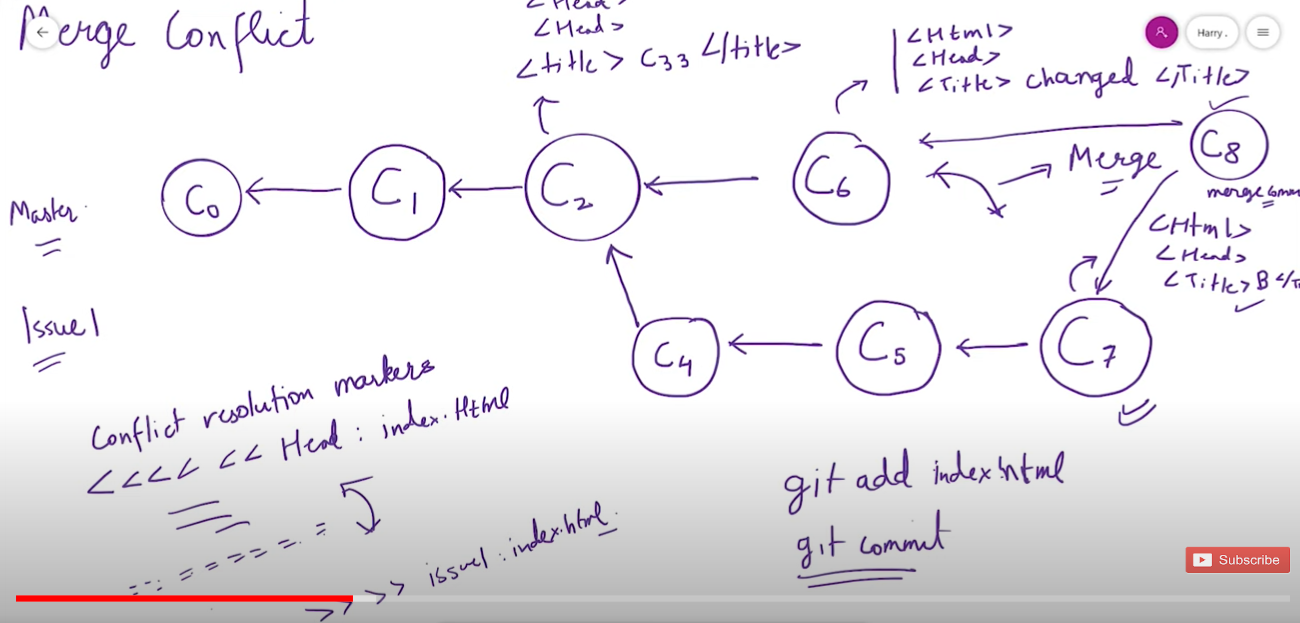 Merge Conflict
<Head>
<Head>
<title> C33 </title>
Harry .
<Html>
<Head>
<Title> changed </Title>
C0
C1
C2
C6
Merge
C8
merge
Master
<Html>
<Head>
<Title> B </T
Issue 1
C4
C5
C7
Conflict resolution markers
<<<< << Head : index.Html
=======
>>>> issue1 : index.html
git add index.html
git commit
Subscribe